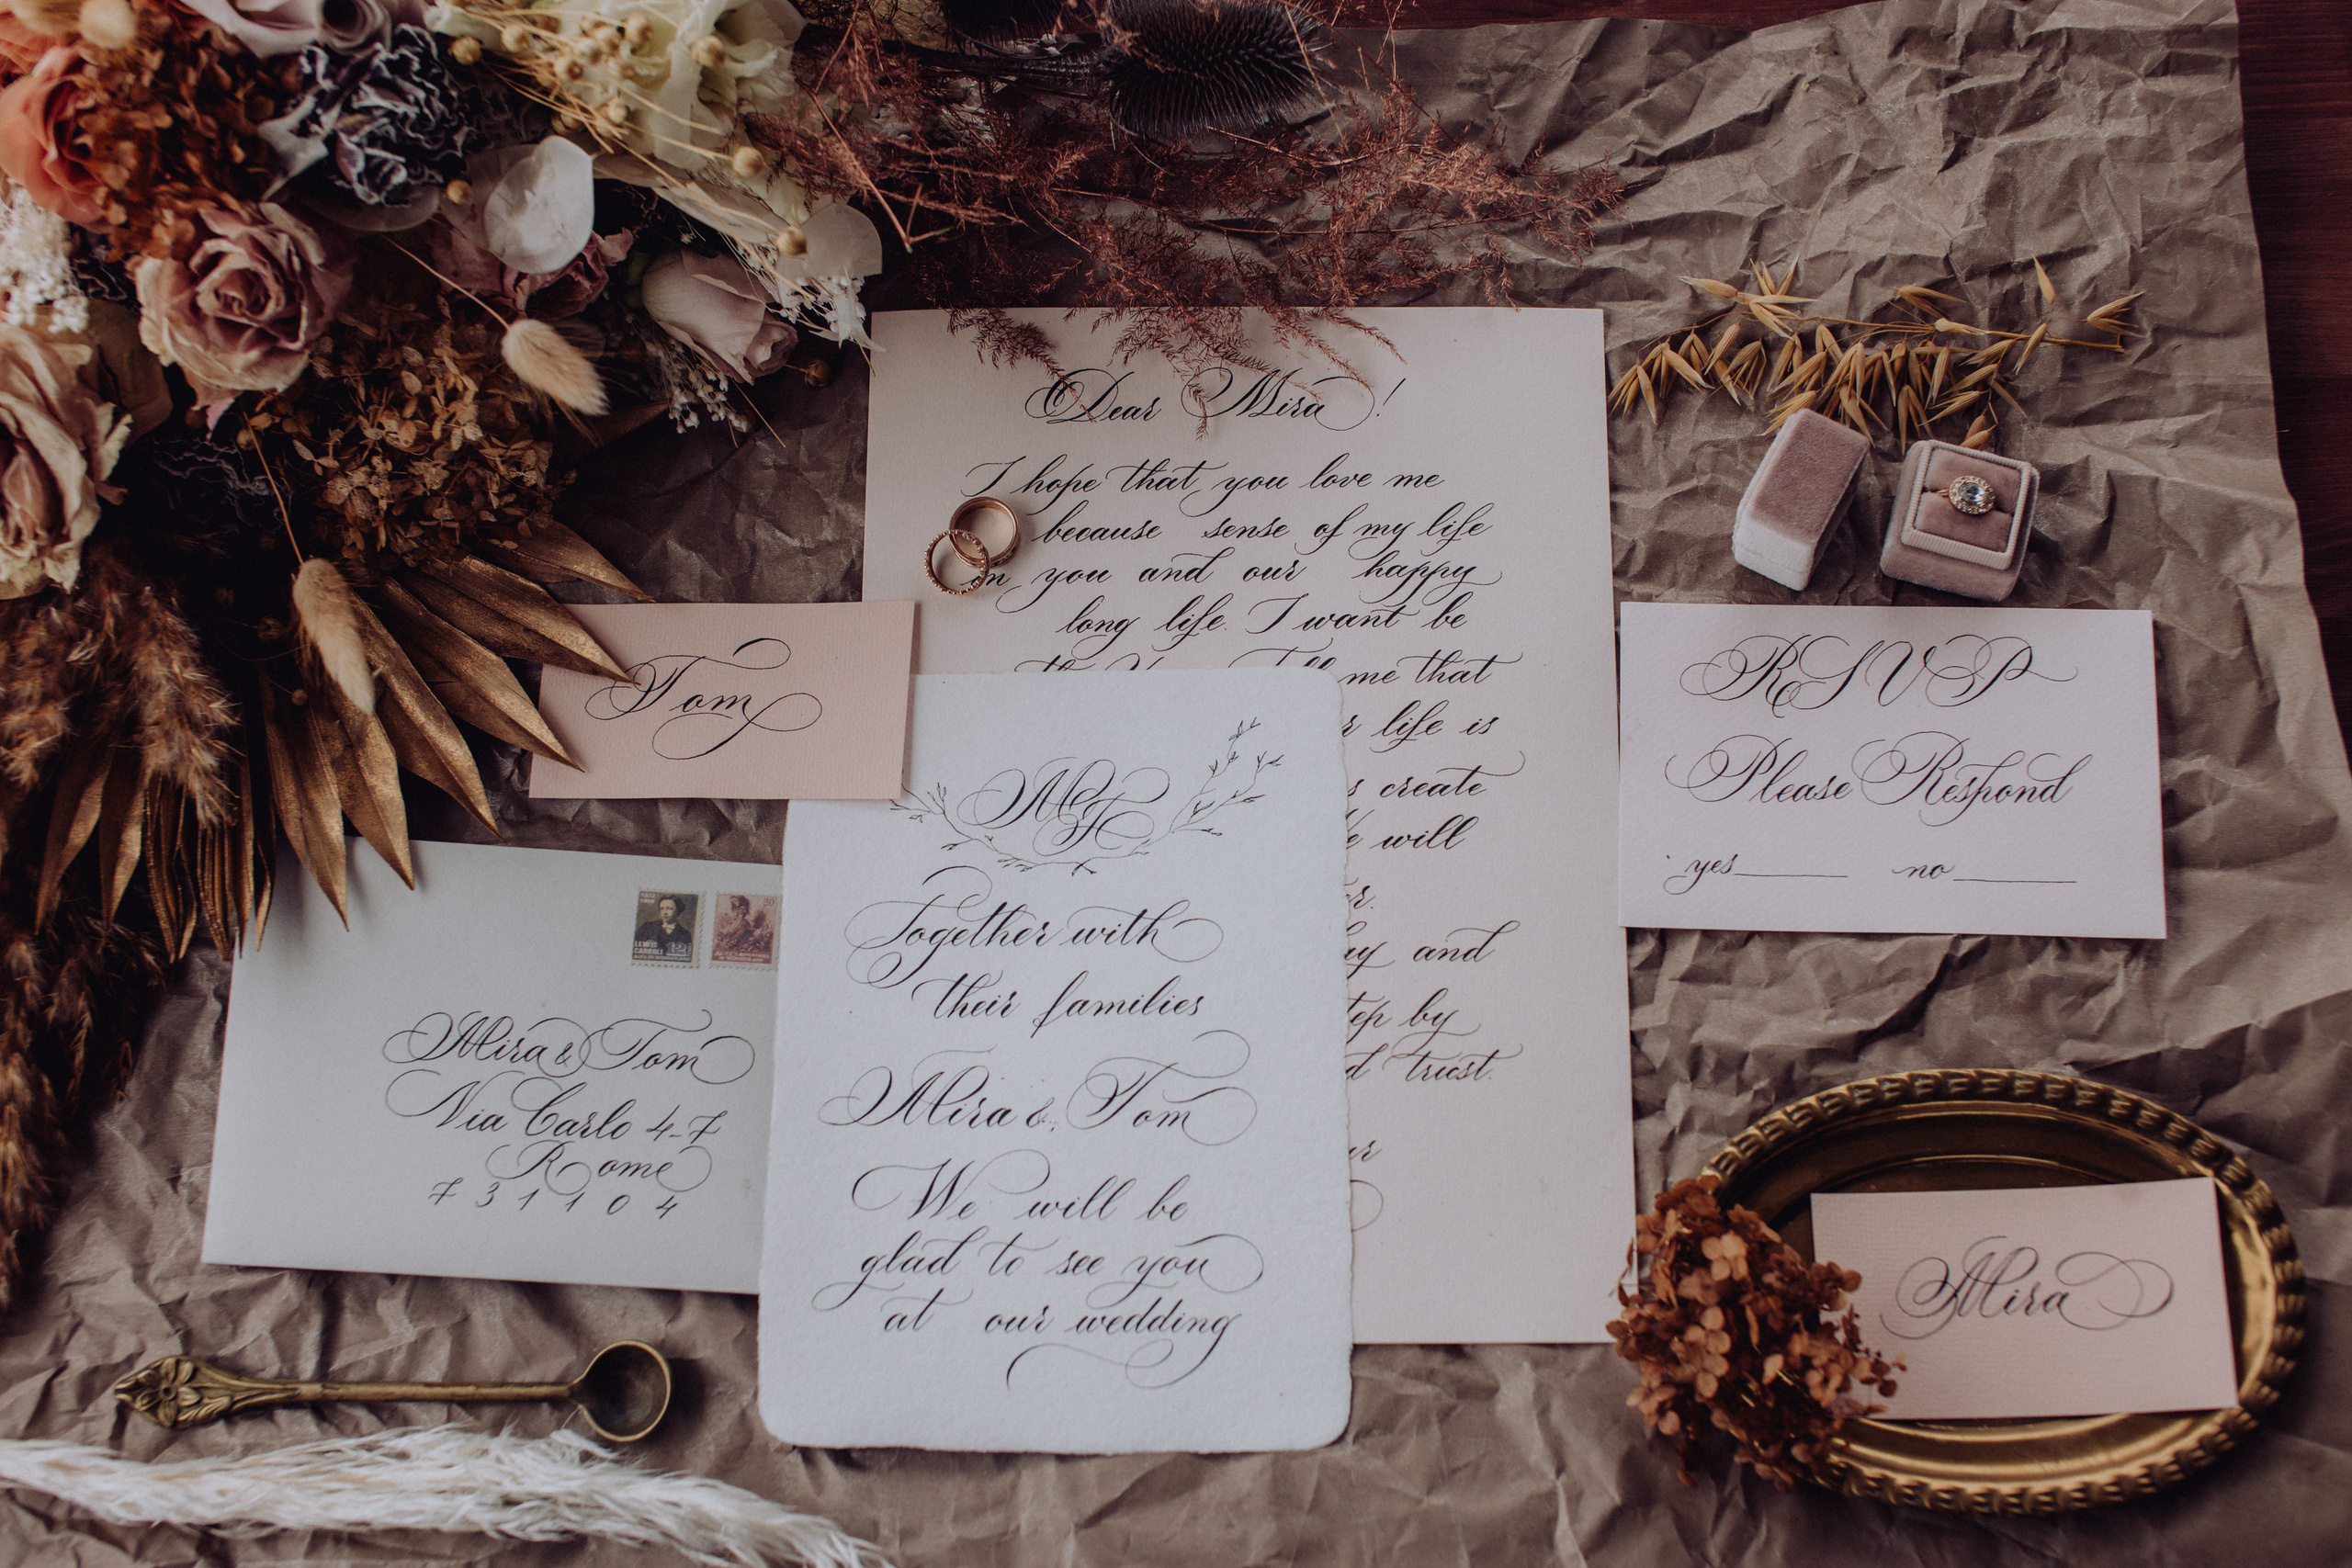 Dear Mira!
I hope that you love me
because sense of my life
in you and our happy
long life. I want be
me that
life is
create
will
and
by
trust.
Tom
MT
Together with
their families
Mira & Tom
We will be
glad to see you
at our wedding
LEWIS
CARROLL 12
Mira & Tom
Via Carlo 4-7
Rome
731104
RSVP
Please Respond
yes no
Mira